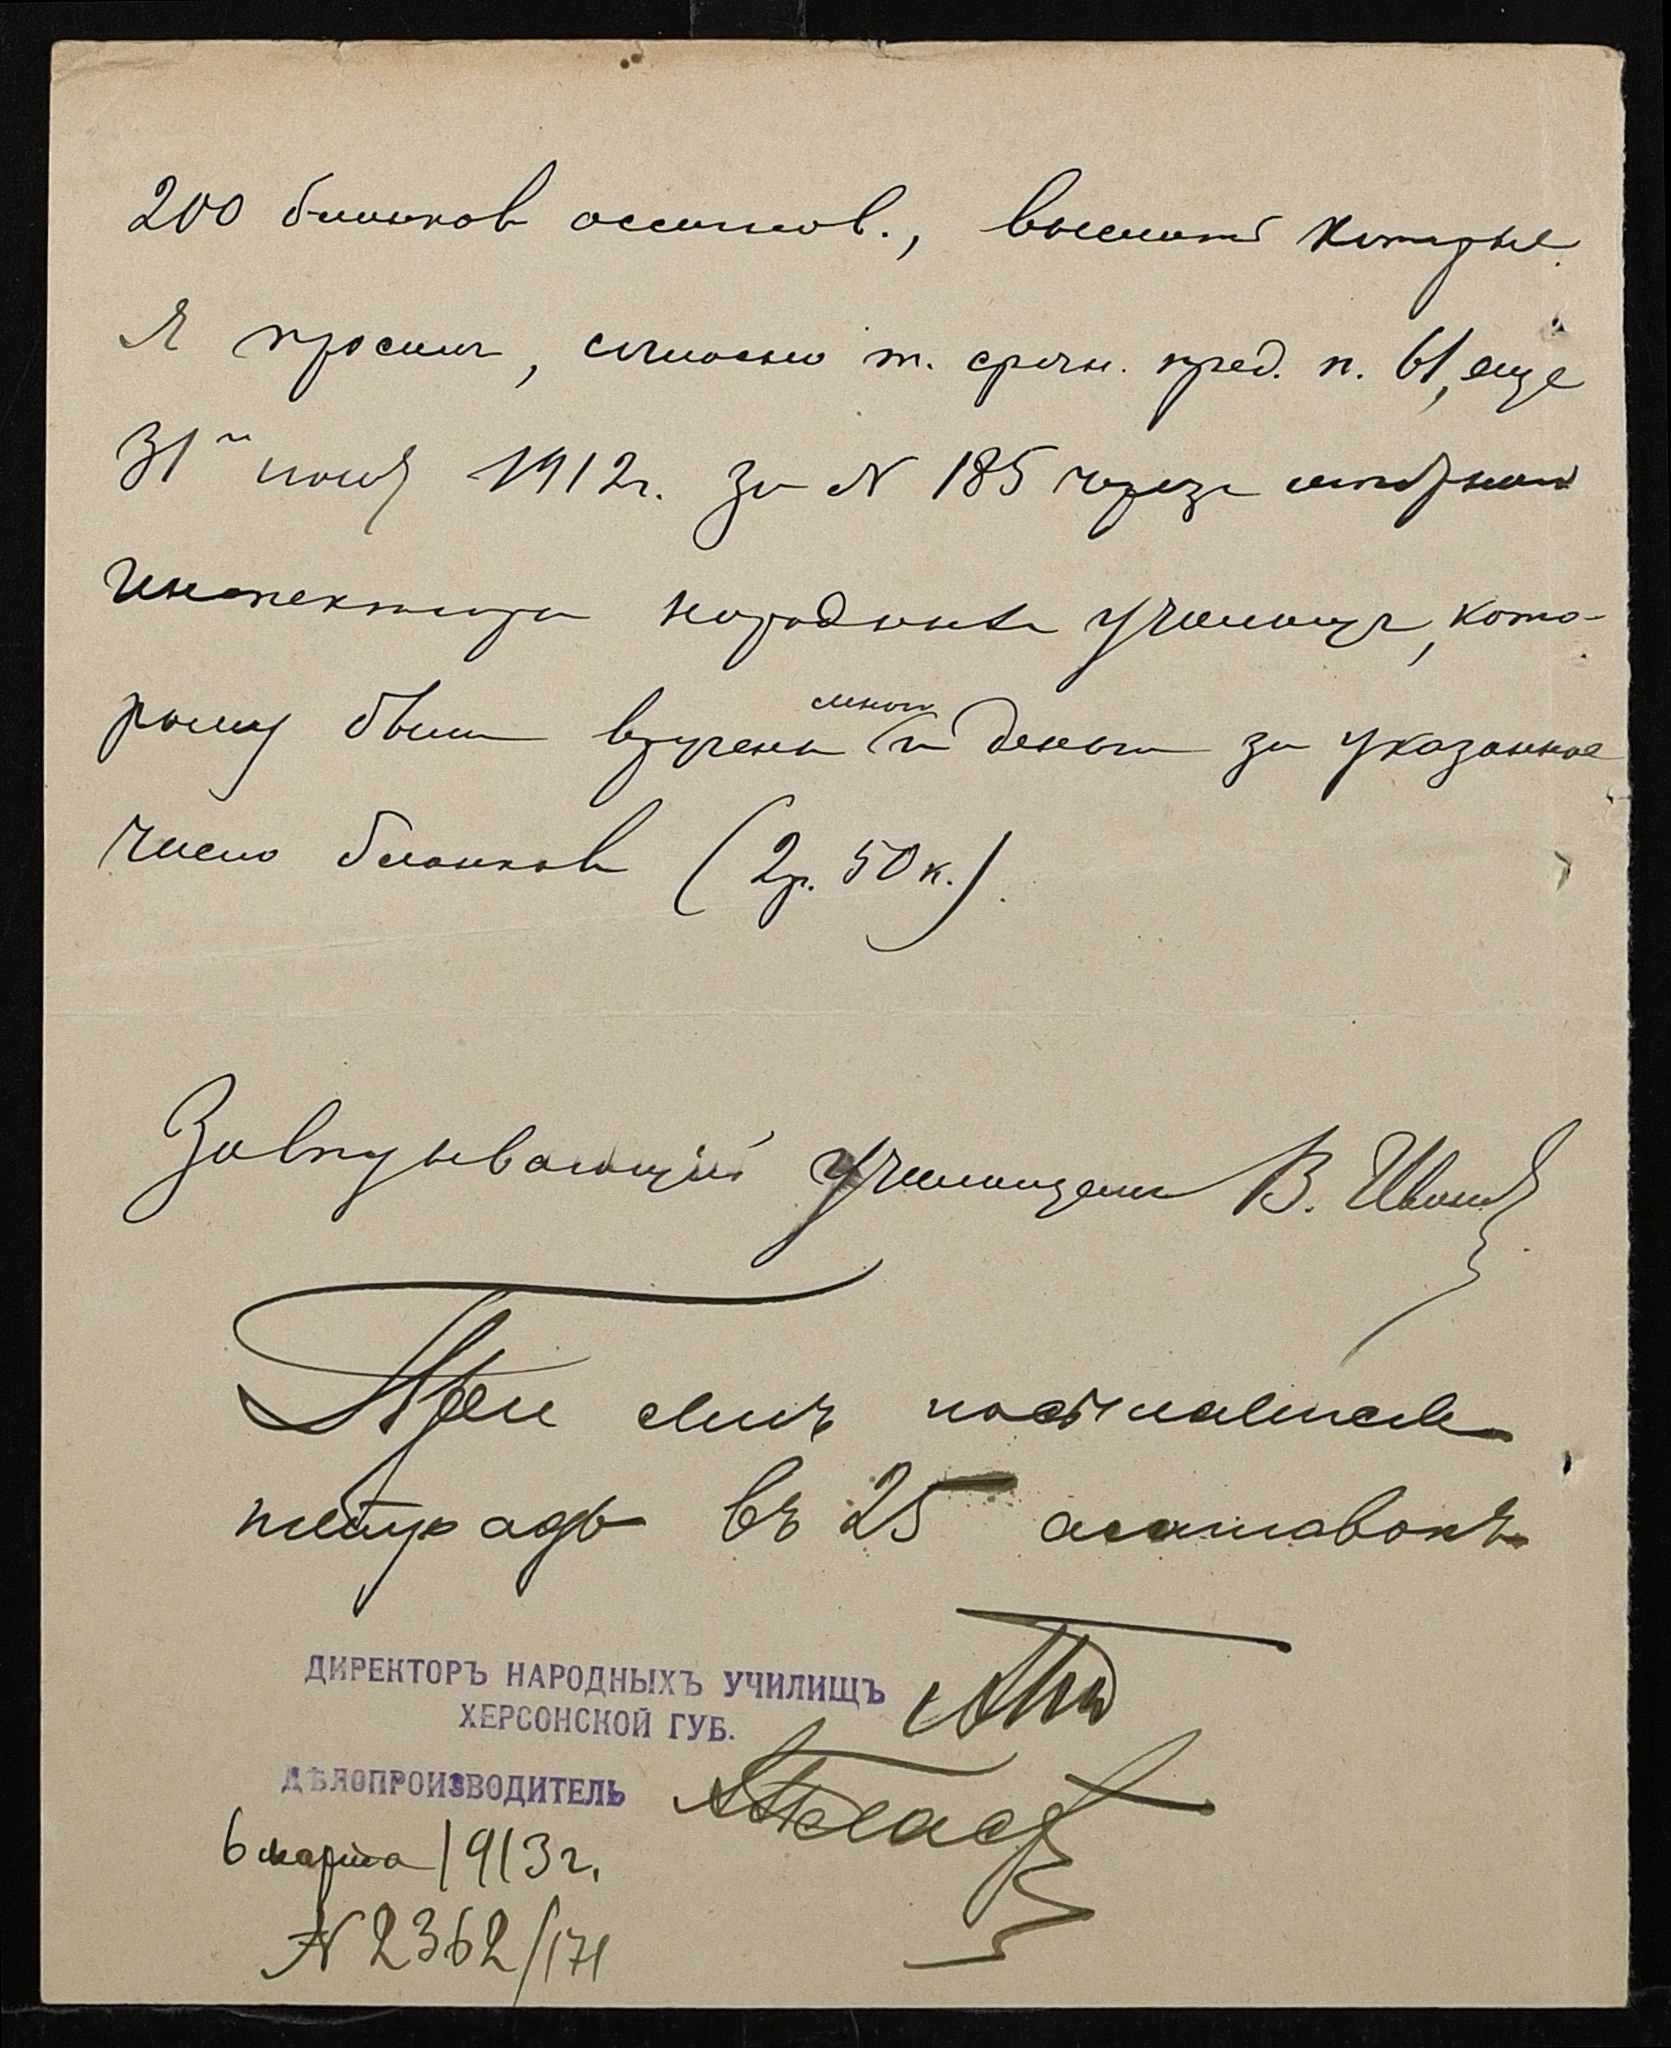 200 бланков ассигнов., выслать которые
я просил, согласно т. срочн. пред. п. 61, еще
31го 1912г. за № 185 через
инспектора народных училищ, кото-
рому были вручены мною и деньги за указанное
число бланков (2р. 50к.).
Заведывающий училищем В. Иванов
При семъ посылается
тетрадь въ 25 ассигновокъ
ДИРЕКТОРЪ НАРОДНЫХЪ УЧИЛИЩЪ
ХЕРСОНСКОЙ ГУБ.
ДѢЛОПРОИЗВОДИТЕЛЬ
6 марта 1913 г.
№ 2362/171